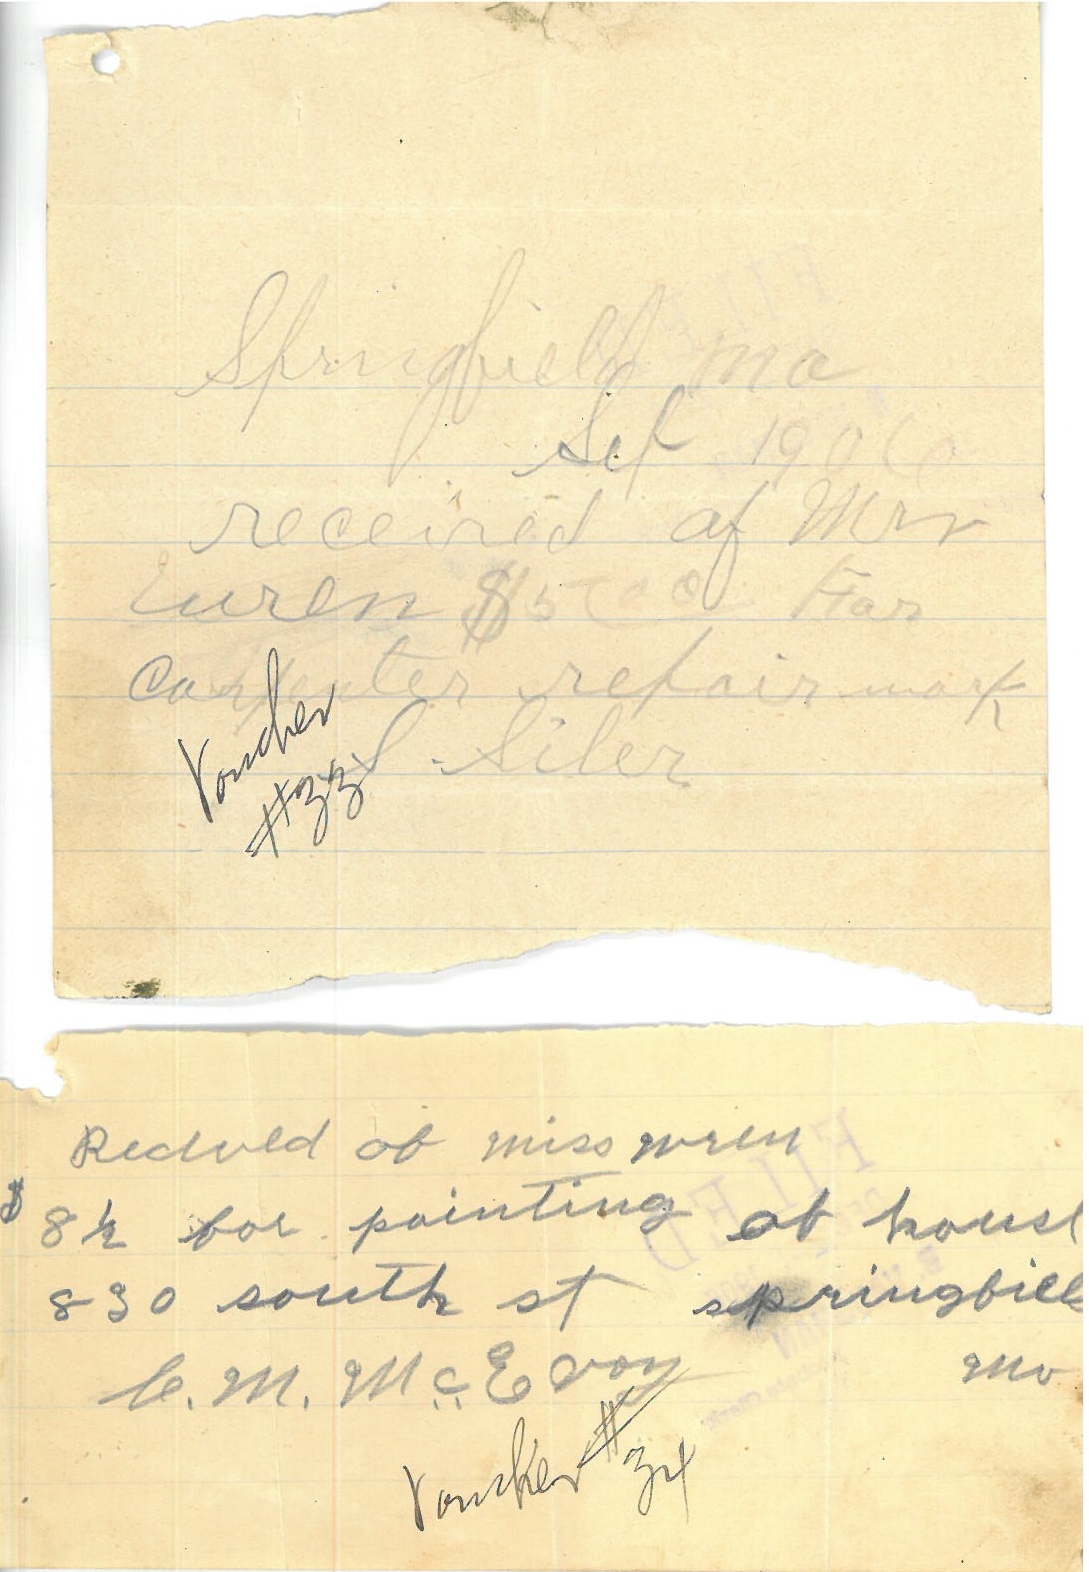 Springfield Mo
Sep 1906
received of Mrs
Euren $15 00 For
Carpenter repair work
S. Siler
Voucher
#33
Recived of miss wren
$ 8½ for painting at hous
830 south st springfiel
C. M. McEvoy Mo
Voucher #34
FILED